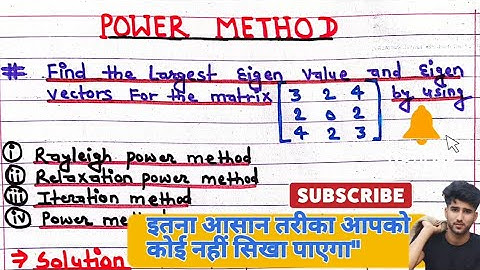 POWER METHOD
# Find the Largest Eigen Value and Eigen
Vectors For the matrix [3 2 4 by using
2 0 2
4 2 3]
(i) Rayleigh power method
(ii) Relaxation power method
(iii) Iteration method
(iv) Power
SUBSCRIBE
इतना आसान तरीका आपको
कोई नहीं सिखा पाएगा"
→ Solution